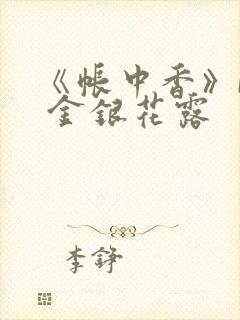 《帐中香》
金银花露
李铮